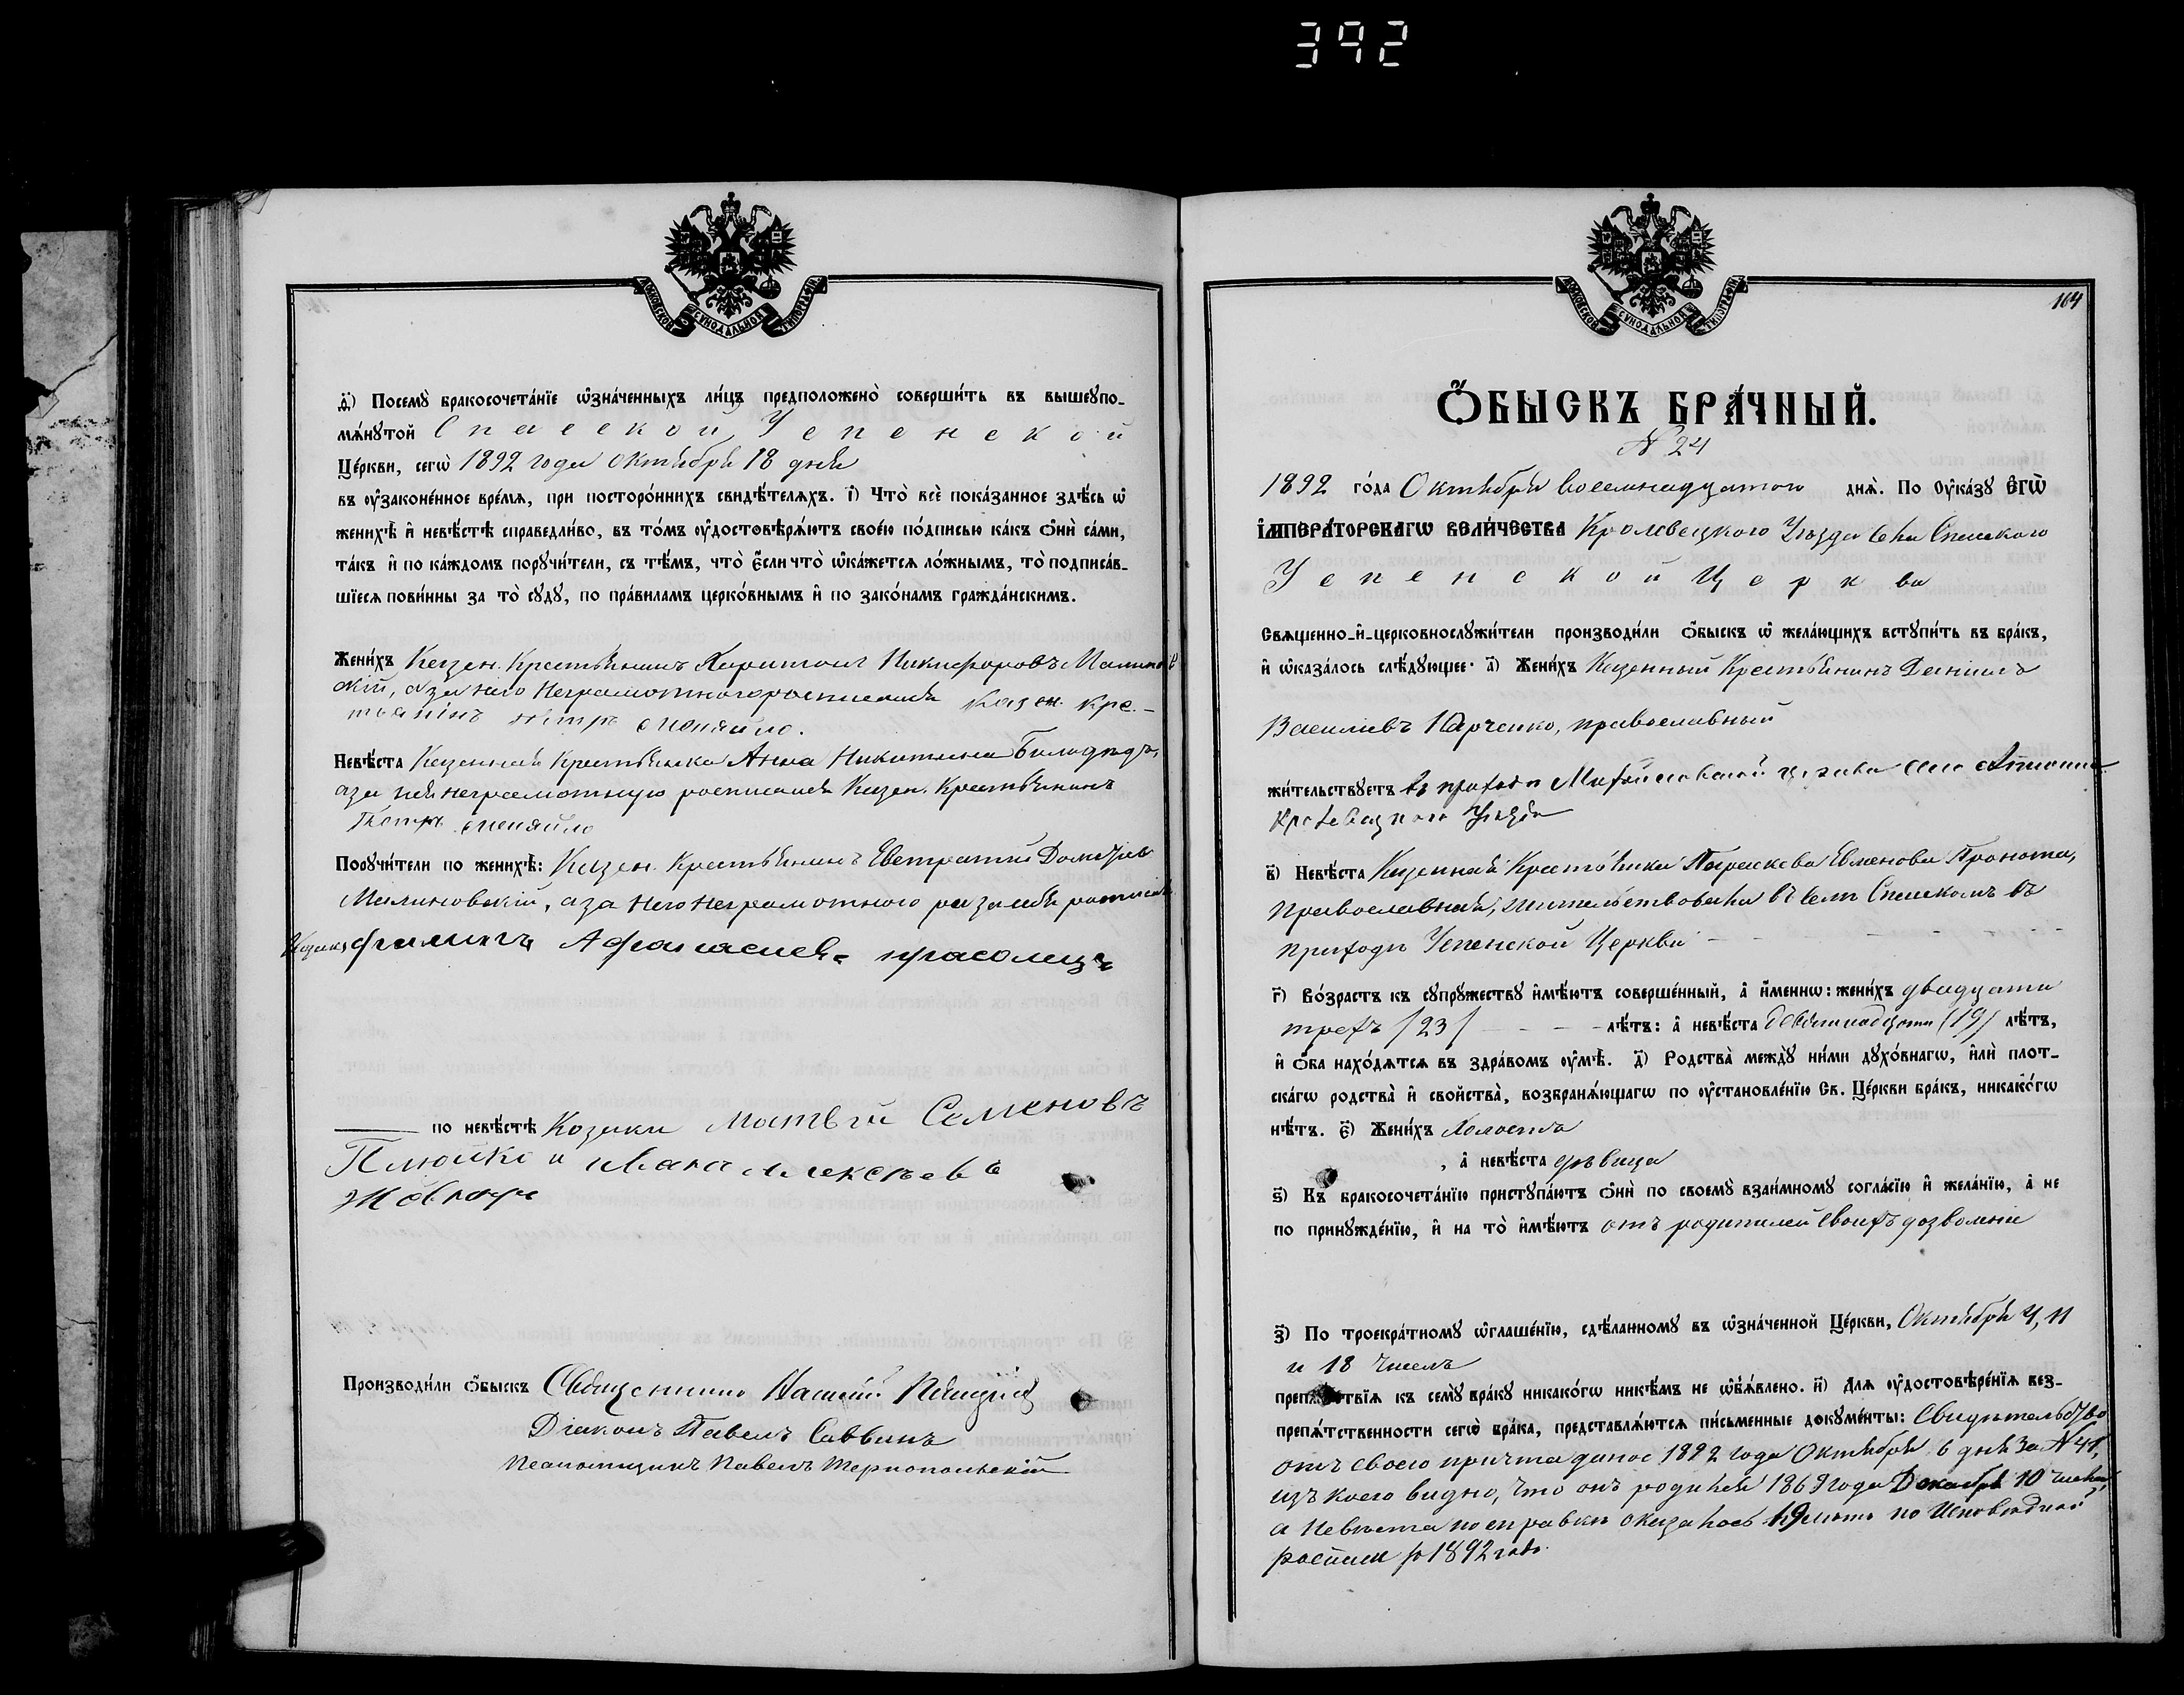 392
МОСКОВСКОЙ СУНОДАЛЬНОЙ ТИПОГРАФІИ
д҃і) Посемꙋ̀ бракосочета́нїе ѡ҆зна́ченныхъ ли́цъ предположено̀ соверши́ть въ вышеꙋпо-
мѧ́нꙋтой Спасской Успенской
Це́ркви, сегѡ̀ 1892 года Октября 18 дня
въ ᲂу҆законе́нное вре́мѧ, при посторо́ннихъ свидѣ́телѧхъ. і҃) Что̀ всѐ пока́занное здѣ́сь ѡ҆
женихѣ̀ и҆ невѣ́стѣ справедли́во, въ то́мъ ᲂу҆достовѣрѧ́ютъ свое́ю по́дписью ка́къ ѻ҆нѝ са́ми,
та́къ и҆ по ка́ждомъ порꙋчи́тели, съ тѣ́мъ, что̀ є҆́сли что̀ ѡ҆ка́жетсѧ ло́жнымъ, то̀ подписа́в-
шїесѧ пови́нны за то̀ сꙋдꙋ̀, по пра́виламъ церко́внымъ и҆ по зако́намъ гражда́нскимъ.
Жени́хъ Казен. Крестьянинъ Харитонъ Никифоровъ Малинов
скій, а за него неграмотного росписался казен. кре-
тьянінъ Петръ
Невѣ́ста Казенная Крестьянка Анна Никитина Билодидъ,
а за нея неграмотную росписался Казен. Крестьянинъ
Петръ
Порꙋчи́тели по женихѣ̀: Казен. Крестьянинъ Евстратій
Малиновскій, а за него неграмотного
Козакъ Филипъ Афанасиевъ
по невѣ́стѣ Козаки Матвѣй Семеновъ
и Иванъ Алексѣевъ
Производи́ли ѻ҆́быскъ Священникъ
Діаконъ Павелъ Саввинъ
Псаломщикъ Павелъ Тернопольскій
МОСКОВСКОЙ СУНОДАЛЬНОЙ ТИПОГРАФІИ
164
Ѻ҆́БЫСКЪ БРА́ЧНЫЙ.
N 24
1892 го́да Октября восемнадцатого днѧ̀. По Оу҆ка́зꙋ Є҆ГѠ̀
І҆МПЕРА́ТОРСКАГѠ ВЕЛИ́ЧЕСТВА Кролевецкого Уѣзда села Спаского
Успенской Церкви
Свѧщенно-и҆-церковнослꙋжи́тели производи́ли ѻ҆́быскъ ѡ҆ жела́ющихъ встꙋпи́ть въ бра́къ,
и҆ ѡ҆каза́лось слѣ́дꙋющее: а҃) Жени́хъ Казенный Крестьянинъ Даніилъ
Василиевъ Юрченко, православный
жи́тельствꙋетъ въ приходѣ
Кролевецкого Уѣзда
в҃) Невѣ́ста Казенная Крестьянка Параскева Евменова
православная, жительствовала въ селѣ Спаскомъ въ
приходѣ Успенской Церкви
г҃) Во́зрастъ къ сꙋпрꙋ́жествꙋ и҆мѣ́ютъ соверше́нный, а҆ и҆́меннѡ: жени́хъ двадцати
трехъ /23/ - - - лѣ́тъ: а҆ невѣ́ста девятнадцати (19) лѣ́тъ,
и҆ ѻ҆́ба нахо́дѧтсѧ въ здра́вомъ ᲂу҆мѣ̀. д҃) Родства̀ междꙋ̀ ни́ми дꙋхо́внагѡ, и҆лѝ плот-
ска́гѡ родства̀ и҆ свойства̀, возбранѧ́ющагѡ по ᲂу҆становле́нїю Св. Це́ркви бра́къ, никако́гѡ
нѣ́тъ. є҃) Жени́хъ Холостъ
, а҆ невѣ́ста дѣвица
ѕ҃) Къ бракосочета́нїю пристꙋпа́ютъ ѻ҆нѝ по своемꙋ̀ взаи́мномꙋ согла́сїю и҆ жела́нїю, а҆ не
по принꙋжде́нїю, и҆ на то̀ и҆мѣ́ютъ отъ родителей своихъ дозволеніе
з҃) По троекра́тномꙋ ѡ҆глаше́нїю, сдѣ́ланномꙋ въ ѡ҆зна́ченной Це́ркви, Октября 4, 11
и 18 числъ
препѧ́тствїѧ къ семꙋ̀ бра́кꙋ никако́гѡ никѣ́мъ не ѡ҆б̾ѧ́влено. и҃) Длѧ ᲂу҆достовѣре́нїѧ без-
препѧ́тственности сегѡ̀ бра́ка, представлѧ́ютсѧ пи́сьменные докꙋме́нты: Свидѣтельство
отъ своего причта данное 1892 года Октября 6 дня за N 41,
изъ коего видно, что онъ родился 1869 года Декабря 10 числа,
а Невѣста по справкѣ оказалось 19 лѣтъ по Исповѣдной
росписи за 1892 годъ.